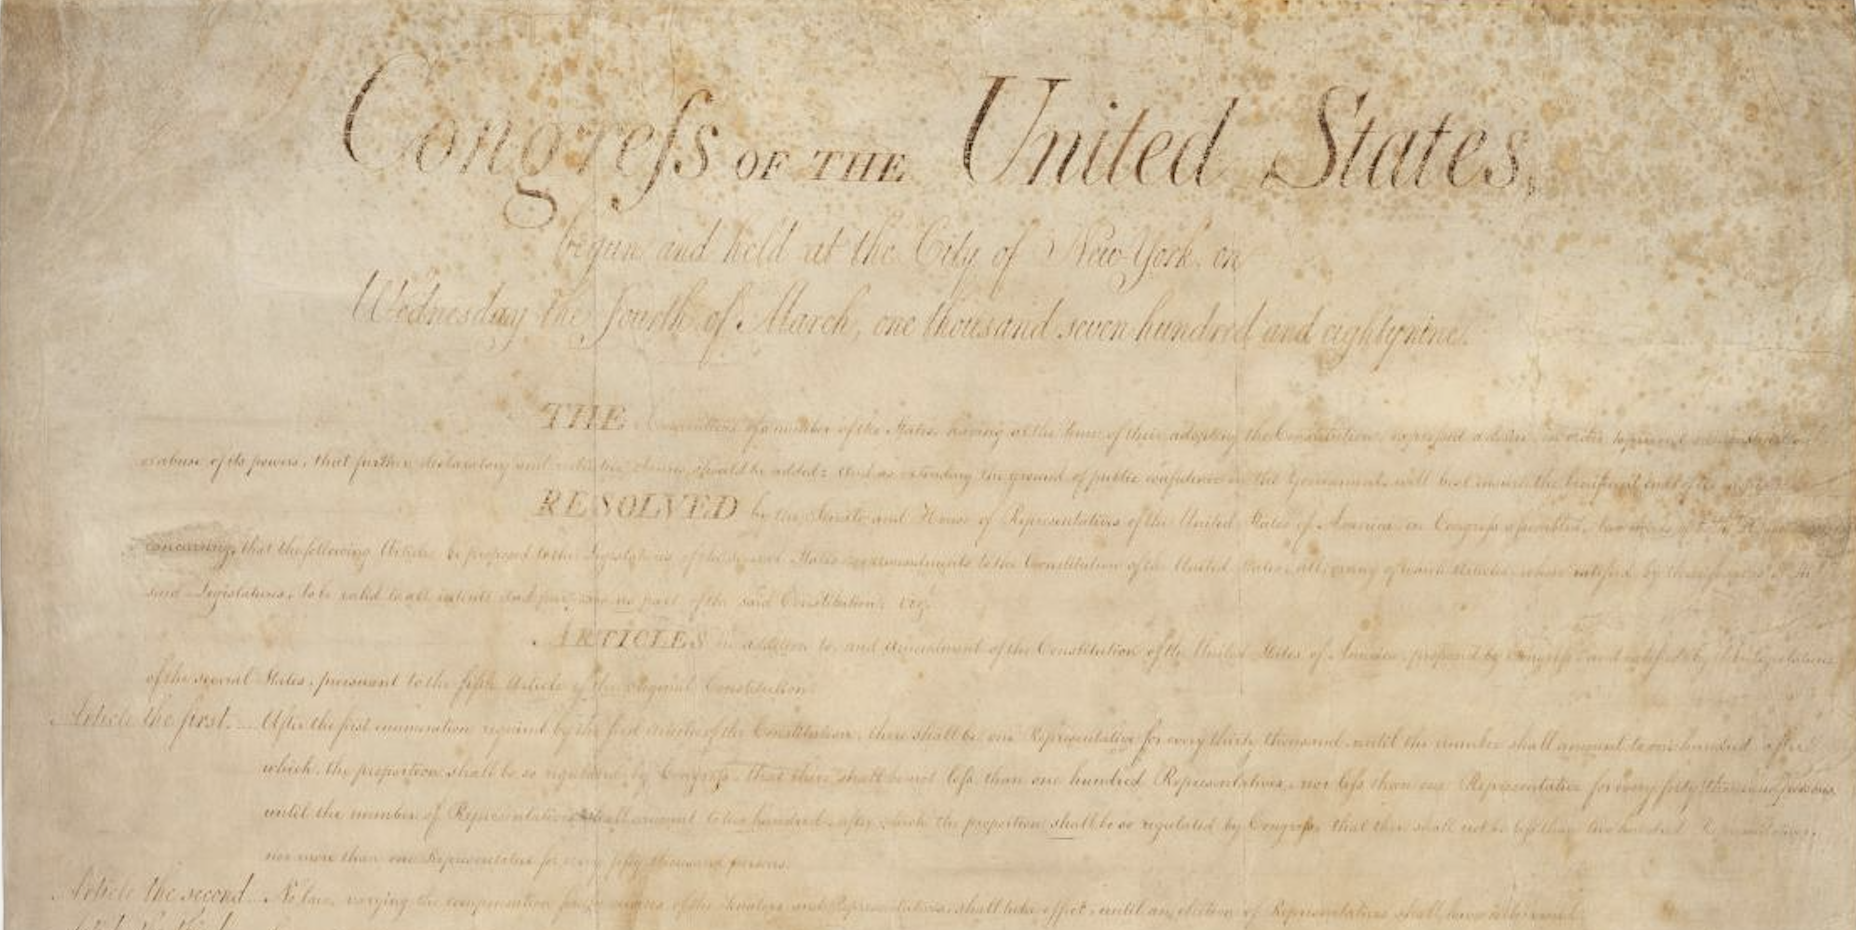 Congreſs OF THE United States,
begun and held at the City of New York, on
Wednesday the fourth of March, one thousand seven hundred and eighty nine.
THE Conventions of a number of the States, having at the time of their adopting the Constitution, expressed a desire, in order to prevent misconstruction
or abuse of its powers, that further declaratory and restrictive clauses should be added: And as extending the ground of public confidence in the Government, will best ensure the beneficent ends of its
RESOLVED by the Senate and House of Representatives of the United States of America, in Congreſs aſsembled, two thirds of both Houses
concurring, that the following Articles be proposed to the Legislatures of the several States, as amendments to the Constitution of the United States, all, or any of which Articles, when ratified by three fourths of the
said Legislatures, to be valid to all intents and purposes, as part of the said Constitution; viz.
ARTICLES in addition to, and Amendment of the Constitution of the United States of America, proposed by Congreſs, and ratified by the Legislatures
of the several States, pursuant to the fifth Article of the original Constitution.
Article the first.... After the first enumeration required by the first Article of the Constitution, there shall be one Representative for every thirty thousand, until the number shall amount to one hundred, after
which, the proportion shall be so regulated by Congreſs, that there shall be not leſs than one hundred Representatives, nor leſs than one Representative for every forty thousand persons,
until the number of Representatives shall amount to two hundred, after which the proportion shall be so regulated by Congreſs, that there shall not be leſs than two hundred Representatives,
nor more than one Representative for every fifty thousand persons.
Article the second... No law, varying the compensation for the services of the Senators and Representatives, shall take effect, until an election of Representatives shall have intervened.